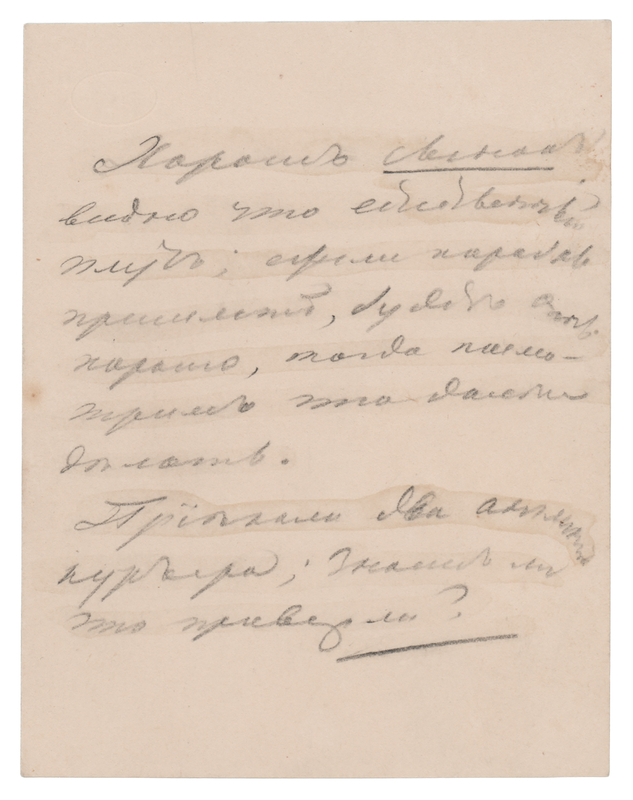 Хорошъ
видно что естественный
плутъ; если
пришлетъ, будетъ очень
хорошо, тогда посмо-
тримъ что далѣе
дѣлать.
Пріѣхали два
курьера; знаешь ли
что привезли?